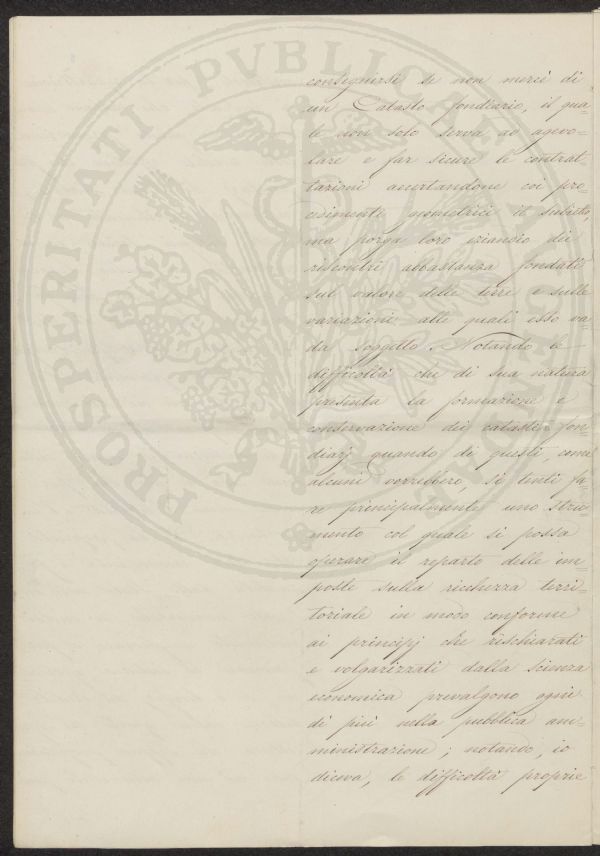 PROSPERITATI PVBLICAE
conseguirsi se non mercè di
un Catasto fondiario, il qua=
le non solo serva ad agevo=
lare e far sicure le contrat=
tazioni accertandone coi pro=
cedimenti geometrici il subietto,
ma porga loro eziandio dei
riscontri abbastanza fondati
sul valore delle terre e sulle
variazioni alle quali esso va=
da soggetto. Notando le
difficoltà che di sua natura
presenta la formazione e
conservazione dei catasti fon=
diarj quando di questi, come
alcuni vorrebbero, si tenti fa=
re principalmente uno stru=
mento col quale si possa
operare il reparto delle im=
poste sulla ricchezza terri=
toriale in modo conforme
ai principj che rischiarati
e volgarizzati dalla scienza
economica prevalgono ogni
dì più nella pubblica am=
ministrazione; notando, io
diceva, le difficoltà proprie